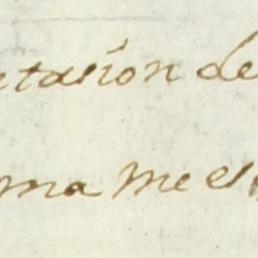 tasion de
ma me es